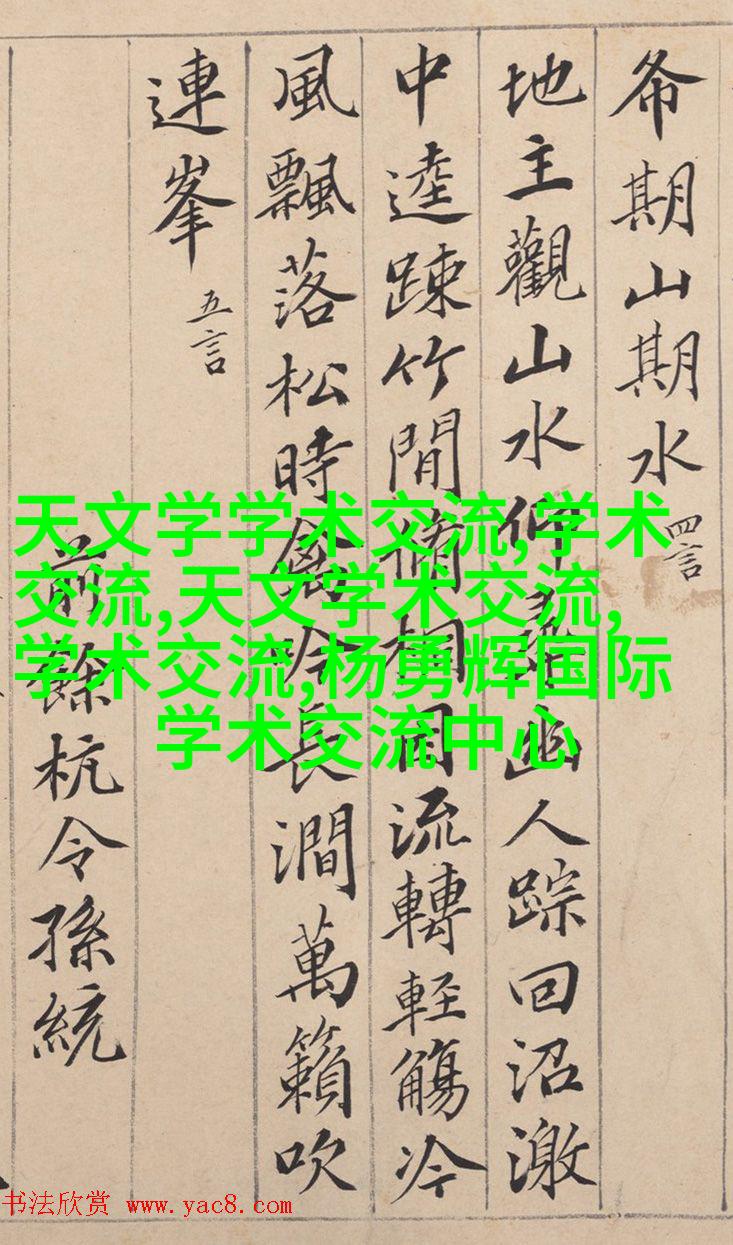 希期山期水 四言
地主觀山水仰尋幽人踪回沼激
中逵踈竹間脩桐因流轉輕觴冷
風飄落松時禽吟長澗萬籟吹
連峯 五言
前餘杭令孫統
天文学学术交流,学术
交流,天文学术交流,
学术交流,杨勇辉国际
学术交流中心
书法欣赏 www.yac8.com